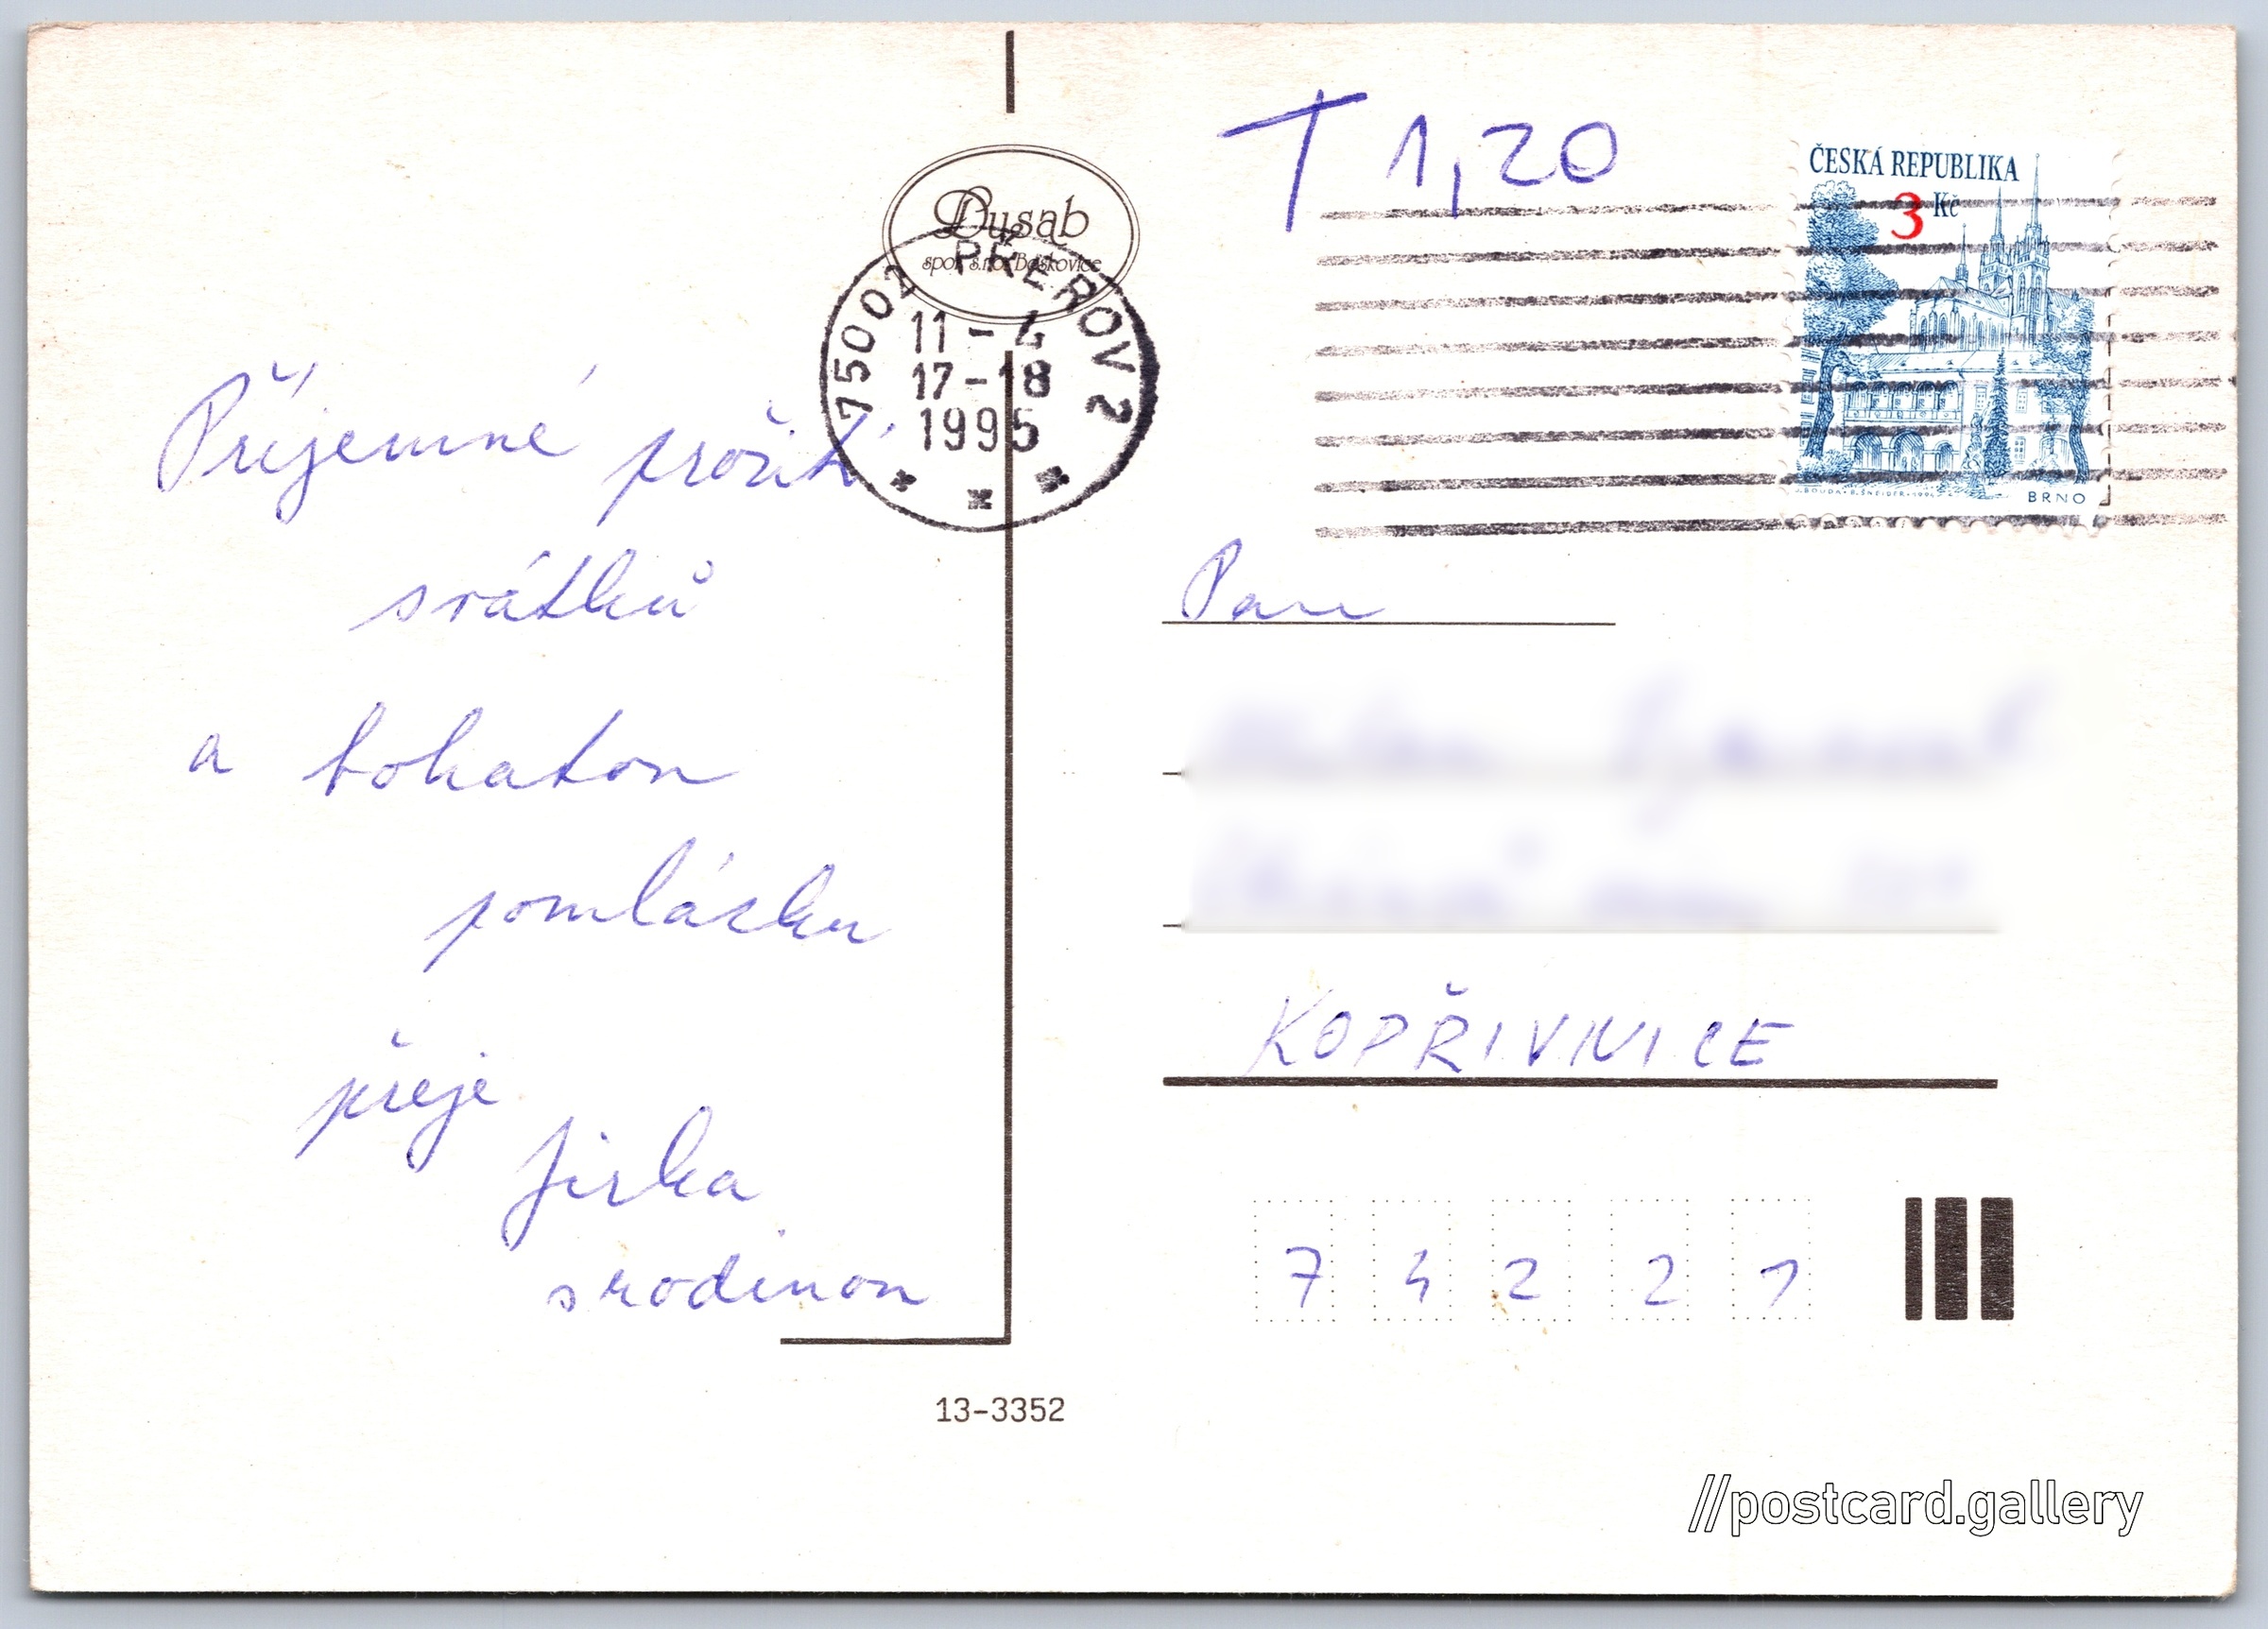 Příjemné prožití
svátků
a bohatou
pomlázku
přeje
Jirka
s rodinou
Dusab
spol. s.r.o. Boskovice
75002 PŘEROV 2
11-4
17-18
1995
T 1,20
ČESKÁ REPUBLIKA
3 Kč
BRNO
Pan
KOPŘIVNICE
7 4 2 2 1
13-3352
//postcard.gallery